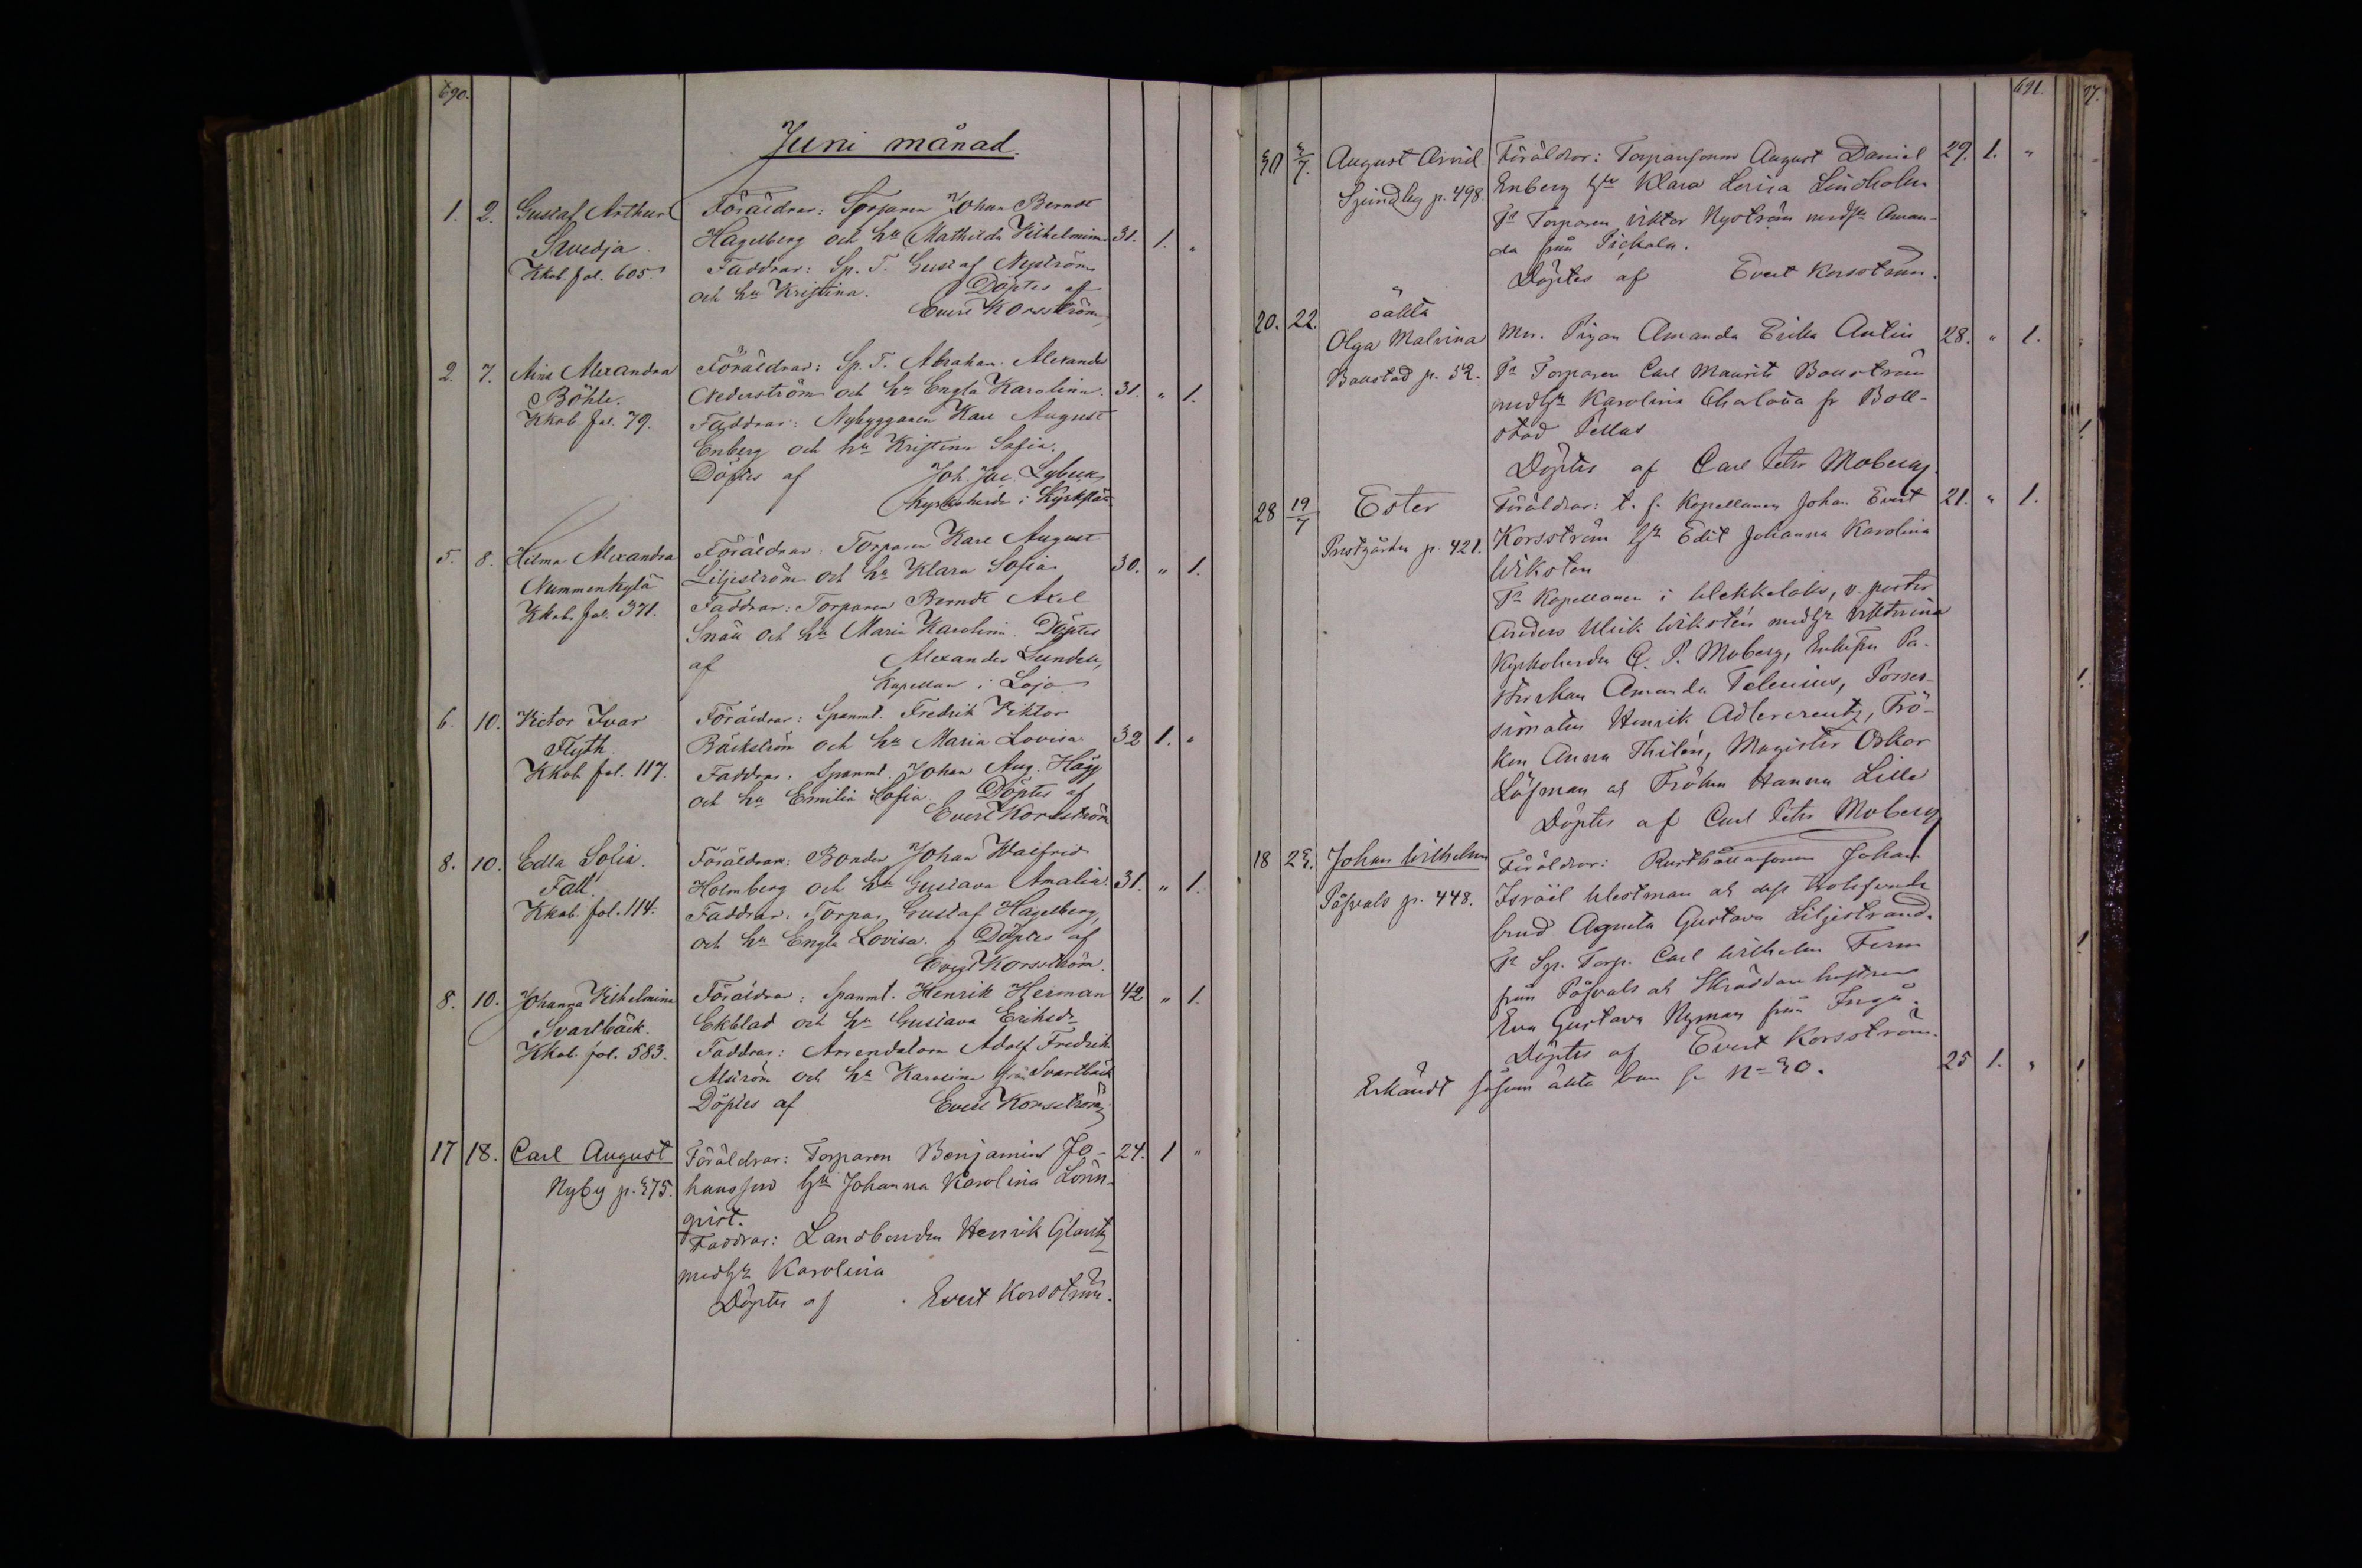 690.
Juni månad.
1. 2. Gustaf Arthur Föräldrar: Torparen Johan Berndt
Swedja Hagelberg och hu Mathilda Vilhelmina 31. 1. "
Kkob. fol. 605. Faddrar: Sp. T. Gustaf Nyström
och hu Kristina. Döptes af
Evert Korsström
2. 7. Aina Alexandra Föräldrar: Sp. T. Abraham Alexander
Böhle. Cederström och hu Engla Karolina. 31. " 1.
Kkob fol. 79. Faddrar: Nybyggaren Karl August
Enberg och hu Kristina Sofia.
Döptes af Joh. Jac. Lybeck
Kyrkoherde i Kyrkslätt
5. 8. Hilma Alexandra Föräldrar: Torparen Karl August
Nummenkylä Liljeström och hu Klara Sofia 30. " 1.
Kkob. fol. 371. Faddrar: Torparen Berndt Axel
Snäll och hu Maria Karolina. Döptes
af Alexander Lundell,
Kapellan i Lojo
6. 10. Victor Ivar Föräldrar: Spanml. Fredrik Viktor
Flyth. Bäckström och hu Maria Lovisa 32 1. "
Kkob fol. 117. Faddrar: Spanml. Johan Aug. Hägg
och hu Emilia Sofia. Döptes af
Evert Korsström
8. 10. Edla Sofia. Föräldrar: Bonden Johan Walfrid
Fall. Holmberg och hu Gustava Amalia 31. " 1.
Kkob. fol. 114. Faddrar: Torpar. Gustaf Hagelberg,
och hu Engla Lovisa. Döptes af
Evert Korsström.
8. 10. Johanna Vilhelmina Föräldrar: Spanml. Henrik Herman 42 " 1.
Svartbäck. Ekblad och hu Gustava Eriksdr
Kkob. fol. 583. Faddrar: Arrendatorn Adolf Fredrik
Alström och hu Karolina från Svartbäck
Döptes af Evert Korsström
17 18. Carl August Föräldrar: Torparen Benjamin Jo- 24. 1 "
Nyby p. 375. hansson hu Johanna Karolina Lönn-
qvist.
Faddrar: Landbonden Henrik
med hu Karolina
Döptes af Evert Korsström.
691.
30 3/7. August Arvid Föräldrar: Torparsonen August Daniel 29. 1. "
p. 498. Enberg hu Klara Lovisa Lindholm
Fr Torparen Viktor Nyström med hu Aman-
da från Pickala.
Döptes af Evert Korsström.
20. 22. oäkta
Olga Malvina Mn. Pigan Amanda Erika Antin 28. " 1.
Båustad p. 52. Fr Torparen Carl Maurits Boström
med hu Karolina Charlotta fr Boll-
stad
Döptes af Carl Petr Moberg.
28 19/7 Ester Föräldrar: t. f. Kapellanen Johan Evert 21. " 1.
Prestgården p. 421. Korsström hu Edit Johanna Karolina
Wiksten
Fr Kapellanen i, v. pastor
Anders Ulrik Wikstén med hu
Kyrkoherden C. P. Moberg, Enkefru Pa-
storskan Amanda Telenius, Posses-
sionaten Henrik Adlercreutz, Frö-
ken Anna Thilén, Magister Oskar
Löfman och Fröken Hanna Lille
Döptes af Carl Petr Moberg
18 23. Johan Wilhelm Föräldrar: Rusthållarsonen Johan
Påfvals p. 448. Israël Westman och dess trolofvade
brud Agneta Gustava Liljestrand.
Fr Sp. Torp. Carl Wilhelm Ferm
från Påfvals och Skräddare hustrun
Eva Gustava Nyman från Ingå.
Döptes af Evert Korsström.
Erkändt såsom äkta barn 25 1. "